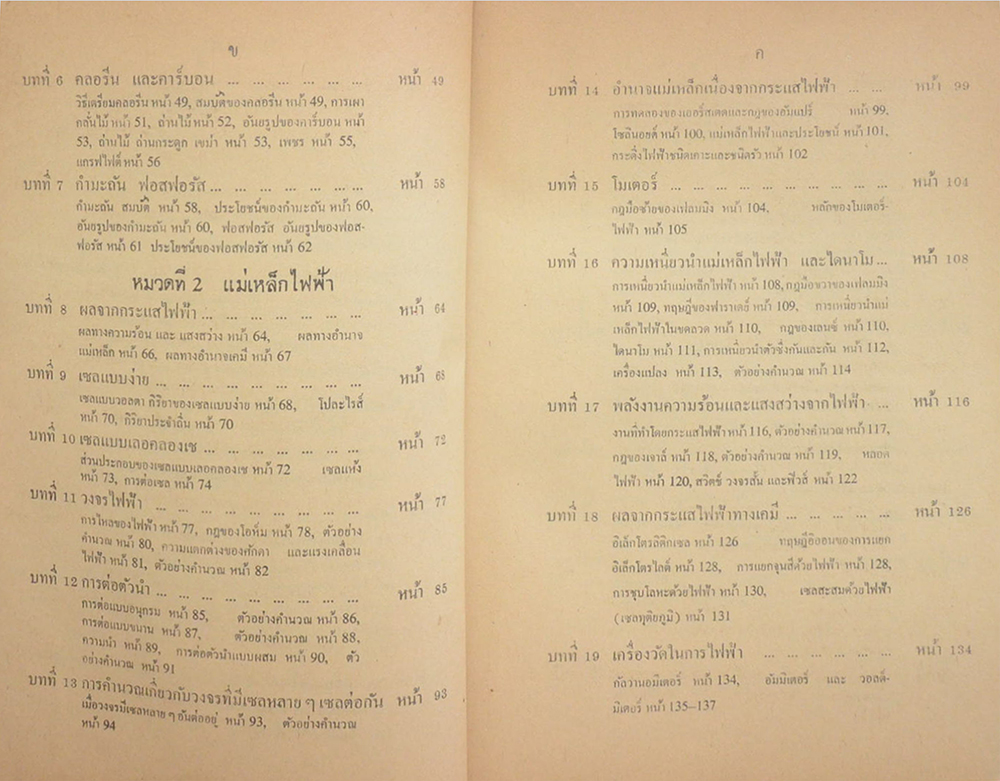 ข
บทที่ 6 คลอรีน และคาร์บอน ... ... ... ... ... ... หน้า 49
วิธีเตรียมคลอรีน หน้า 49, สมบัติของคลอรีน หน้า 49, การเผา
กลั่นไม้ หน้า 51, ถ่านไม้ หน้า 52, อันยรูปของคาร์บอน หน้า
53, ถ่านไม้ ถ่านกระดูก เขม่า หน้า 53, เพชร หน้า 55,
แกรฟไฟต์ หน้า 56
บทที่ 7 กำมะถัน ฟอสฟอรัส ... ... ... ... ... ... หน้า 58
กำมะถัน สมบัติ หน้า 58, ประโยชน์ของกำมะถัน หน้า 60,
อันยรูปของกำมะถัน หน้า 60, ฟอสฟอรัส อันยรูปของฟอส-
ฟอรัส หน้า 61 ประโยชน์ของฟอสฟอรัส หน้า 62
หมวดที่ 2 แม่เหล็กไฟฟ้า
บทที่ 8 ผลจากกระแสไฟฟ้า ... ... ... ... ... ... ... หน้า 64
ผลทางความร้อน และ แสงสว่าง หน้า 64, ผลทางอำนาจ
แม่เหล็ก หน้า 66, ผลทางอำนาจเคมี หน้า 67
บทที่ 9 เซลแบบง่าย ... ... ... ... ... ... ... ... ... หน้า 68
เซลแบบวอลตา กิริยาของเซลแบบง่าย หน้า 68, โปละไรส์
หน้า 70, กิริยาประจำถิ่น หน้า 70
บทที่ 10 เซลแบบเลอคลองเช ... ... ... ... ... ... ... หน้า 72
ส่วนประกอบของเซลแบบเลอคลองเช หน้า 72 เซลแห้ง
หน้า 73, การต่อเซล หน้า 74
บทที่ 11 วงจรไฟฟ้า ... ... ... ... ... ... ... ... ... หน้า 77
การไหลของไฟฟ้า หน้า 77, กฎของโอห์ม หน้า 78, ตัวอย่าง
คำนวณ หน้า 80, ความแตกต่างของศักดา และแรงเคลื่อน
ไฟฟ้า หน้า 81, ตัวอย่างคำนวณ หน้า 82
บทที่ 12 การต่อตัวนำ ... ... ... ... ... ... ... ... หน้า 85
การต่อแบบอนุกรม หน้า 85, ตัวอย่างคำนวณ หน้า 86,
การต่อแบบขนาน หน้า 87, ตัวอย่างคำนวณ หน้า 88,
ความนำ หน้า 89, การต่อตัวนำแบบผสม หน้า 90, ตัว
อย่างคำนวณ หน้า 91
บทที่ 13 การคำนวณเกี่ยวกับวงจรที่มีเซลหลาย ๆ เซลต่อกัน หน้า 93
เมื่อวงจรมีเซลหลาย ๆ อันต่ออยู่ หน้า 93, ตัวอย่างคำนวณ
หน้า 94
ค
บทที่ 14 อำนาจแม่เหล็กเนื่องจากกระแสไฟฟ้า ... ... หน้า 99
การทดลองของเออร์สเตดและกฎของอัมแปร์ หน้า 99,
โซลินอยด์ หน้า 100, แม่เหล็กไฟฟ้าและประโยชน์ หน้า 101,
กระดิ่งไฟฟ้าชนิดเคาะและชนิดรัว หน้า 102
บทที่ 15 โมเตอร์ ... ... ... ... ... ... ... ... ... ... หน้า 104
กฎมือซ้ายของเฟลมมิง หน้า 104, หลักของโมเตอร์-
ไฟฟ้า หน้า 105
บทที่ 16 ความเหนี่ยวนำแม่เหล็กไฟฟ้า และไดนาโม ... หน้า 108
การเหนี่ยวนำแม่เหล็กไฟฟ้า หน้า 108, กฎมือขวาของเฟลมมิง
หน้า 109, ทฤษฎีของฟาราเดย์ หน้า 109, การเหนี่ยวนำแม่
เหล็กไฟฟ้าในขดลวด หน้า 110, กฎของเลนซ์ หน้า 110,
ไดนาโม หน้า 111, การเหนี่ยวนำตัวซึ่งกันและกัน หน้า 112,
เครื่องแปลง หน้า 113, ตัวอย่างคำนวณ หน้า 114
บทที่ 17 พลังงานความร้อนและแสงสว่างจากไฟฟ้า ... หน้า 116
งานที่ทำโดยกระแสไฟฟ้า หน้า 116, ตัวอย่างคำนวณ หน้า 117,
กฎของเจาล์ หน้า 118, ตัวอย่างคำนวณ หน้า 119, หลอด
ไฟฟ้า หน้า 120, สวิตช์ วงจรสั้น และฟิวส์ หน้า 122
บทที่ 18 ผลจากกระแสไฟฟ้าทางเคมี ... ... ... ... ... หน้า 126
อิเล็กโตรลิติกเซล หน้า 126 ทฤษฎีอิออนของการแยก
อิเล็กโตรไลต์ หน้า 128, การแยกจุนสีด้วยไฟฟ้า หน้า 128,
การชุบโลหะด้วยไฟฟ้า หน้า 130, เซลสะสมด้วยไฟฟ้า
(เซลทุติยภูมิ) หน้า 131
บทที่ 19 เครื่องวัดในการไฟฟ้า ... ... ... ... ... ... หน้า 134
กัลวานอมิเตอร์ หน้า 134, อัมมิเตอร์ และ วอลต์-
มิเตอร์ หน้า 135–137